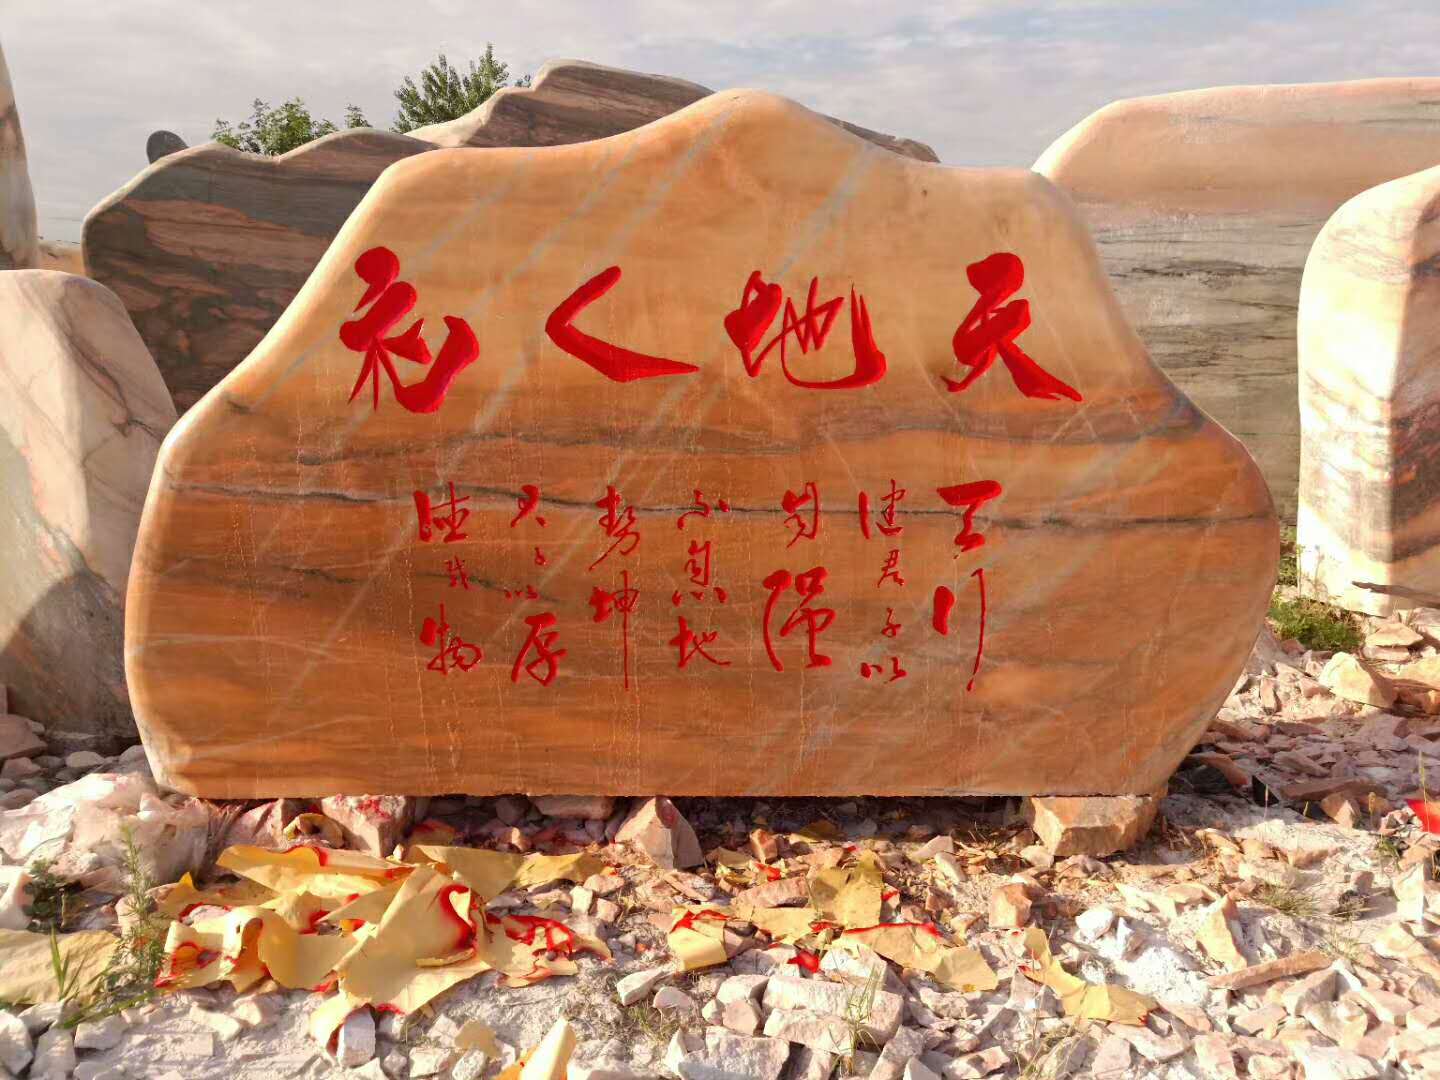 天地人和
天行
健君子以
自强
不息地
势坤
君子以厚
德载物